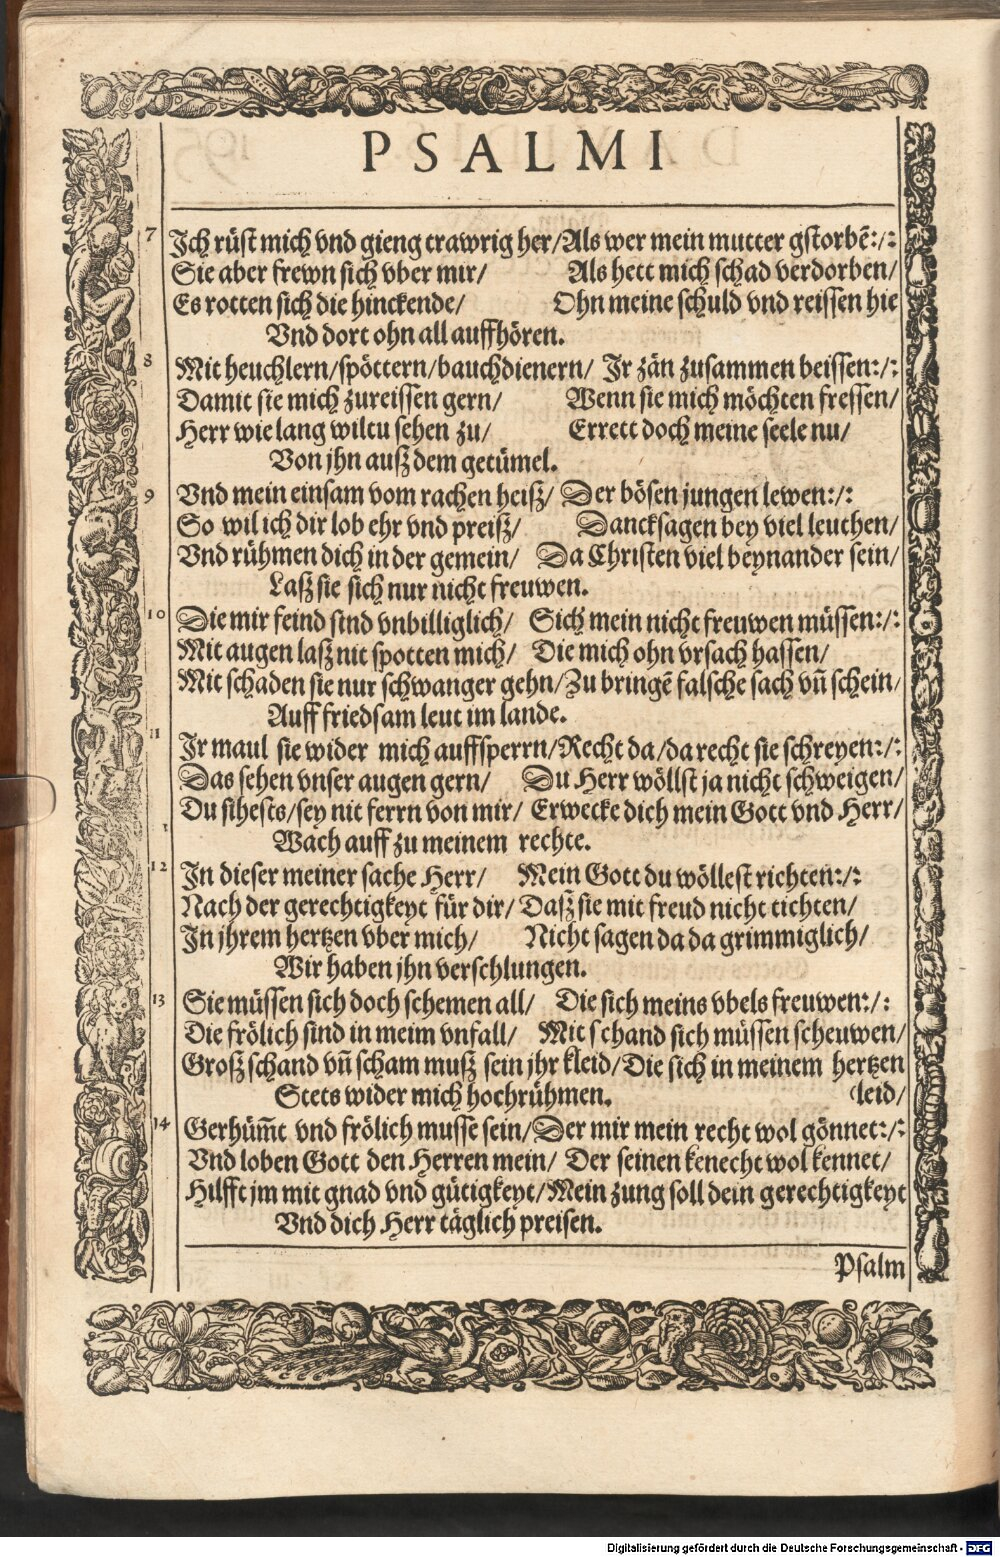 PSALMI
7 Ich rüst mich vnd gieng trawrig her/Als wer mein mutter gstorbẽ:/:
Sie aber frewn sich vber mir/ Als hett mich schad verdorben/
Es rotten sich die hinckende/ Ohn meine schuld vnd reissen hie
Vnd dort ohn all auffhören.
8 Mit heuchlern/spöttern/bauchdienern/ Ir zän zusammen beissen:/:
Damit sie mich zureissen gern/ Wenn sie mich möchten fressen/
Herr wie lang wiltu sehen zu/ Errett doch meine seele nu/
Von jhn auß dem getümel.
9 Vnd mein einsam vom rachen heiß/ Der bösen jungen lewen:/:
So wil ich dir lob ehr vnd preiß/ Dancksagen bey viel leuthen/
Vnd rühmen dich in der gemein/ Da Christen viel beynander sein/
Laß sie sich nur nicht freuwen.
10 Die mir feind sind vnbilliglich/ Sich mein nicht freuwen müssen:/:
Mit augen laß nit spotten mich/ Die mich ohn vrsach hassen/
Mit schaden sie nur schwanger gehn/Zu bringẽ falsche sach vñ schein/
Auff friedsam leut im lande.
11 Ir maul sie wider mich auffsperrn/Recht da/da recht sie schreyen:/:
Das sehen vnser augen gern/ Du Herr wöllst ja nicht schweigen/
Du sihests/sey nit ferrn von mir/ Erwecke dich mein Gott vnd Herr/
Wach auff zu meinem rechte.
12 In dieser meiner sache Herr/ Mein Gott du wöllest richten:/:
Nach der gerechtigkeyt für dir/ Daß sie mit freud nicht tichten/
In jhrem hertzen vber mich/ Nicht sagen da da grimmiglich/
Wir haben jhn verschlungen.
13 Sie müssen sich doch schemen all/ Die sich meins vbels freuwen:/:
Die frölich sind in meim vnfall/ Mit schand sich müssen scheuwen/
Groß schand vñ scham muß sein jhr kleid/Die sich in meinem hertzen
Stets wider mich hochrühmen. (leid/
14 Gerhüm̃t vnd frölich musse sein/Der mir mein recht wol gönnet:/:
Vnd loben Gott den Herren mein/ Der seinen kenecht wol kennet/
Hilfft jm mit gnad vnd gütigkeyt/Mein zung soll dein gerechtigkeyt
Vnd dich Herr täglich preisen.
Psalm
Digitalisierung gefördert durch die Deutsche Forschungsgemeinschaft - DFG